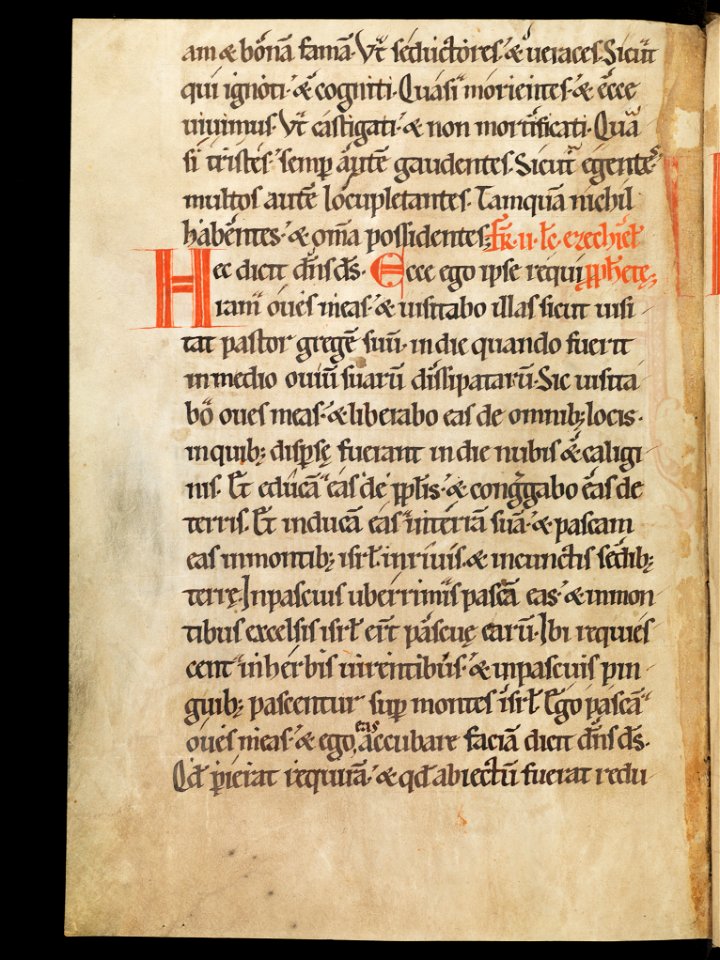 am & bonā famā. Vt̄ seductores. & ueraces. Sicut
qui ignoti. & cogniti. Quasi morientes. & ecce
uiuimus. Vt̄ castigati. & non mortificati. Qua
si tristes. semp̄ autē gaudentes. Sicut egentes
multos autē locupletantes. Tamquā nichil
habentes. & om̄a possidentes; Fr̄. ii. lc̄. ezechiel̄
Hec dicit dn̄s ds̄. Ecce ego ipse requi p̄phetę;
ram oues meas. & uisitabo illas sicut uisi
tat pastor gregē suū. in die quando fuerit
in medio ouiū suarū dissipatarū. Sic uisita
bo oues meas. & liberabo eas de omnib; locis.
in quib; disp̄sę fuerant in die nubis & caligi
nis. Et educā eas de p̄plis. & congͣgabo eas de
terris. Et inducā eas in terrā suā. & pascam
eas in montib; isrl̄. in riuis. & in cunctis sedib;
terrę. In pascuis uberrimis pascā eas. & in mon
tibus excelsis isrl̄ erit̄ pascuę earū. Ibi requies
cent in herbis uirentibus. & in pascuis pin
guib; pascentur sup̄ montes isrl̄. Ego pascā
oues meas. & ego eas accubare faciā dicit dn̄s ds̄.
Qd̄ p̄ierat requirā. & qd̄ abiectū fuerat redu